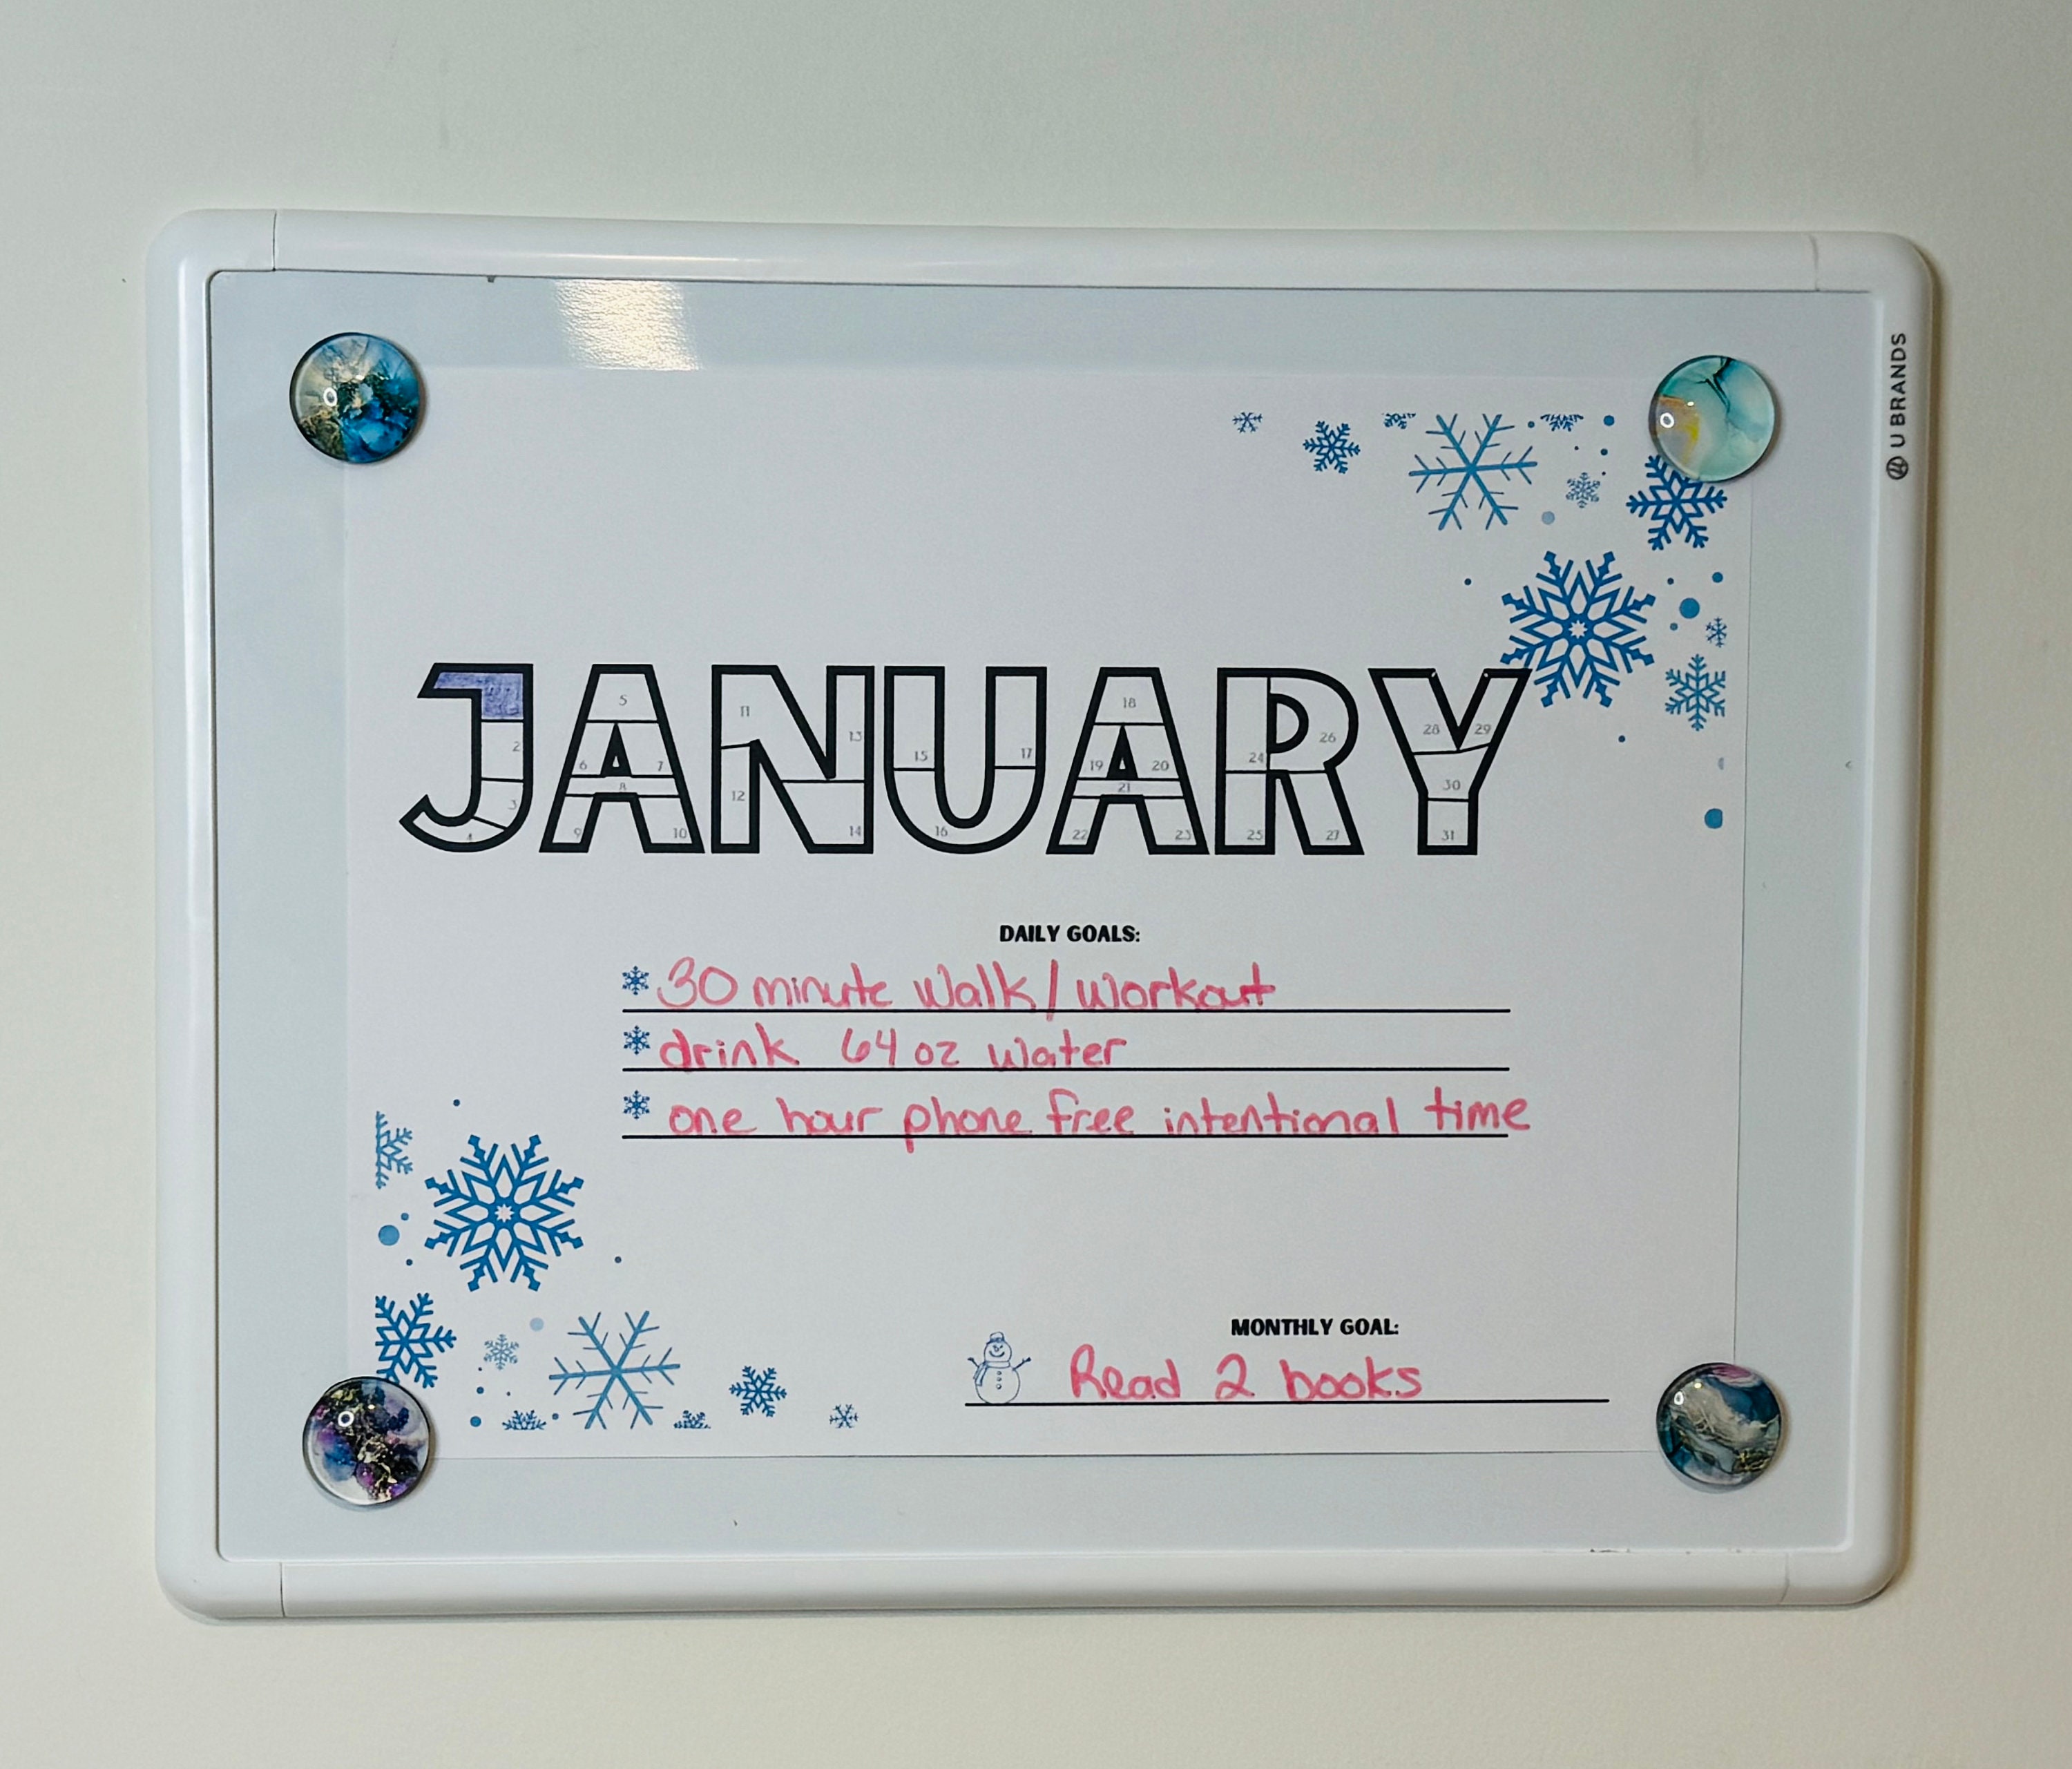 U BRANDS
JANUARY
5
18
11
2
13
28
29
26
15
17
24
6
7
19
20
8
21
30
12
3
4
9
10
14
16
22
23
25
27
31
DAILY GOALS:
30 minute walk/workout
drink 64 oz water
one hour phone free intentional time
MONTHLY GOAL:
Read 2 books